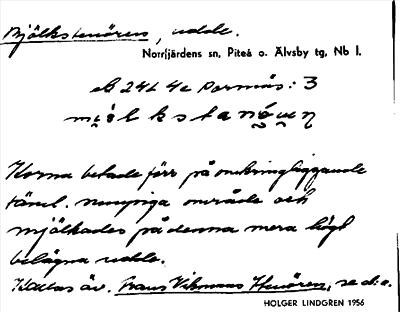 Mjölkstenören, udde.
Norrfjärdens sn, Piteå o. Älvsby tg, Nb l.
eB 24L 4c Pormäs: 3
Korna betade förr på omkringliggande
täml. steniga område och
mjölkades på denna mera högt
belägna udde.
Kallas äv. Frans Vikmans Stenören, se d:o.
HOLGER LINDGREN 1956